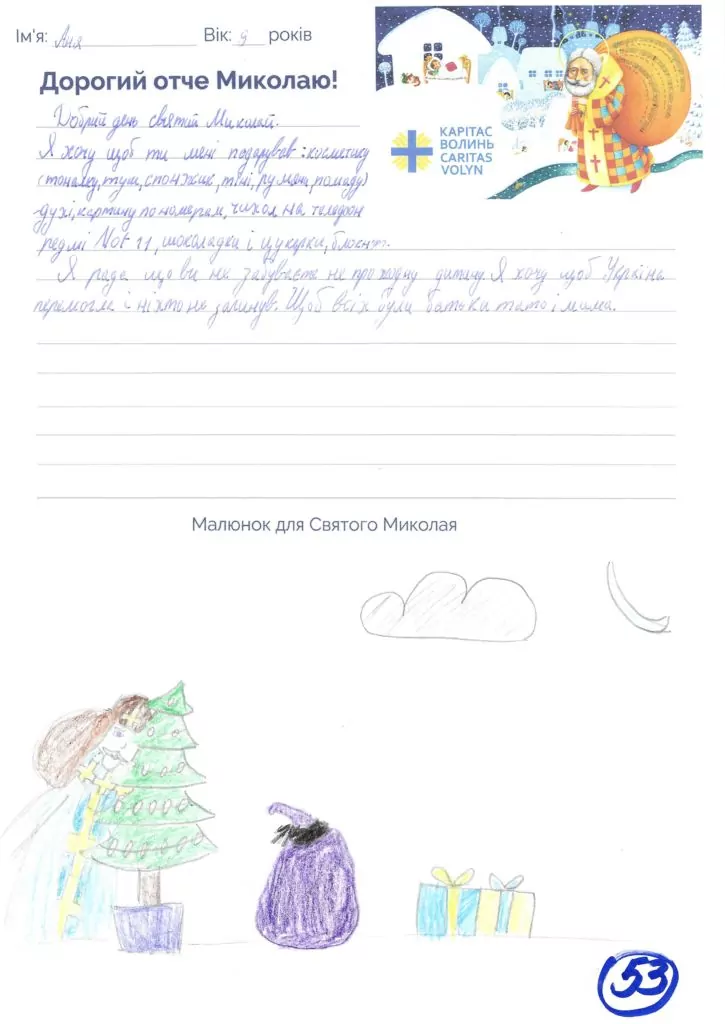 Ім'я: Аня Вік: 9 років
Дорогий отче Миколаю!
КАРІТАС
ВОЛИНЬ
CARITAS
VOLYN
Добрий день святий Миколай.
Я хочу щоб ти мені подарував: косметику
(тоналку, туш, спонжик, тіні, румяни, помаду)
духі, картину по номерам, чихол на телефон
редмі Not 11, шоколадки і цукерки, блокнот.
Я рада що ви не забуваєте не про жодну дитину. Я хочу щоб Україна
перемогла і ніхто не загинув. Щоб всіх були батьки тато і мама.
Малюнок для Святого Миколая
53